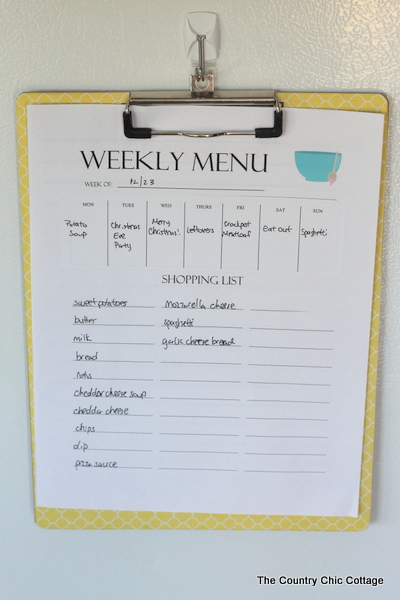 WEEKLY MENU
WEEK OF: 12/23
MON TUES WED THURS FRI SAT SUN
Potato Soup
Christmas Eve Party
Merry Christmas!
Leftovers
Crockpot Meatloaf
Eat Out
Spaghetti
SHOPPING LIST
sweet potatoes
butter
milk
bread
cheddar cheese soup
cheddar cheese
chips
dip
pizza sauce
mozzarella cheese
spaghetti
garlic cheese bread
The Country Chic Cottage